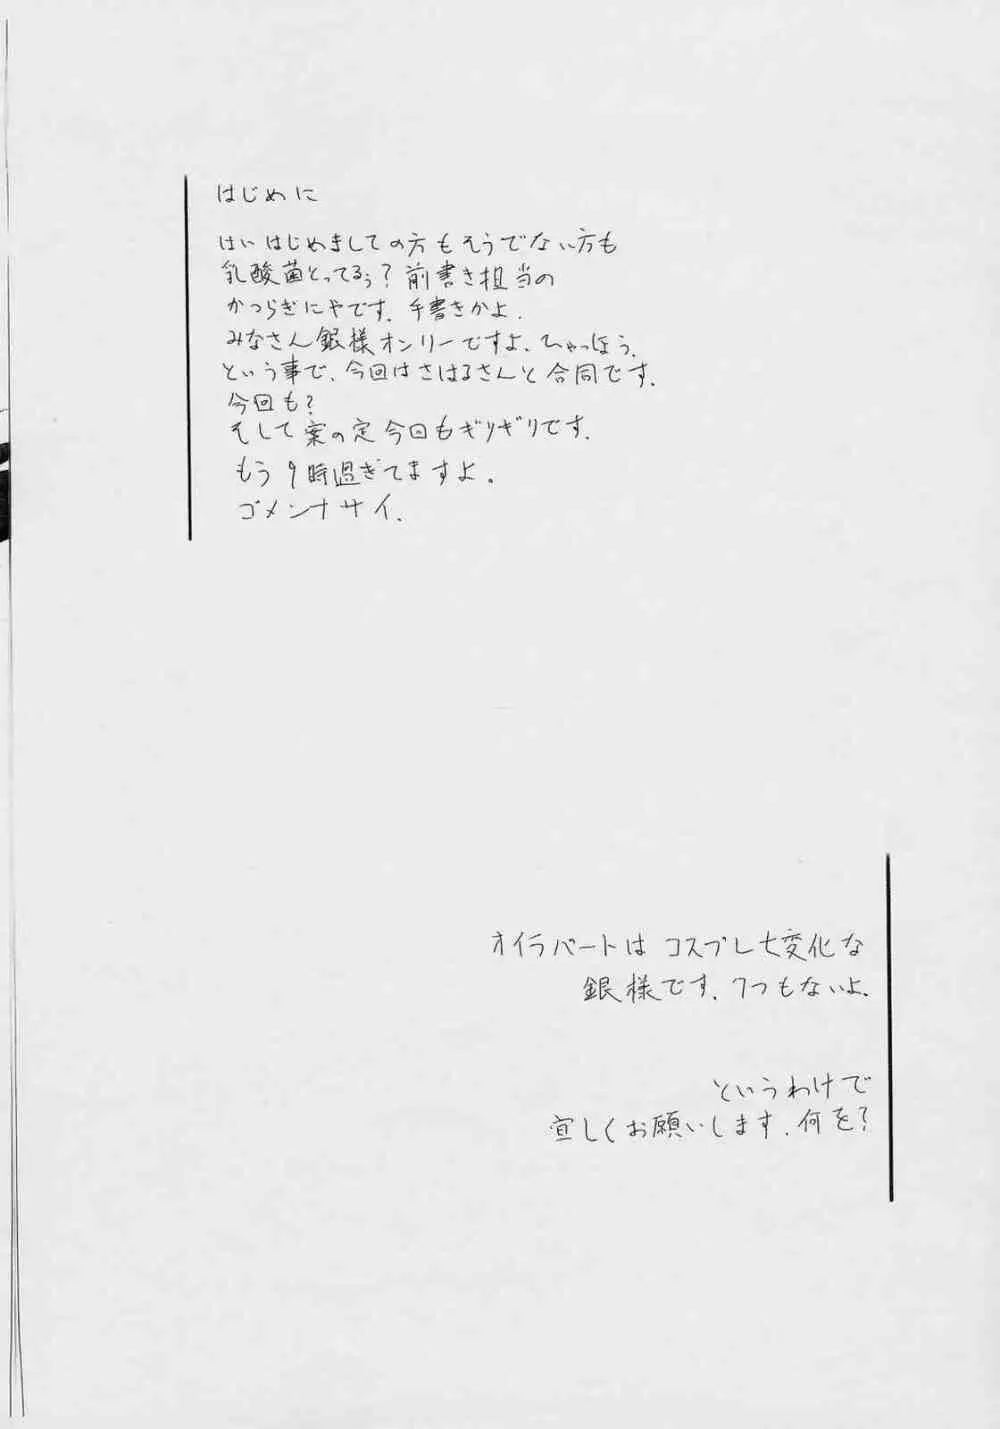 はじめに
はい はじめましての方もそうでない方も
乳酸菌とってるぅ？前書き担当の
かつらぎにやです．手書きかよ．
みなさん銀様オンリーですよ、ひゃっほう．
という事で、今回はさはるさんと合同です．
今回も？
そして案の定今回もギリギリです．
もう9時過ぎてますよ。
ゴメンナサイ．
オイラパートは コスプレ七変化な
銀様です．7つもないよ．
というわけで
宜しくお願いします．何を？